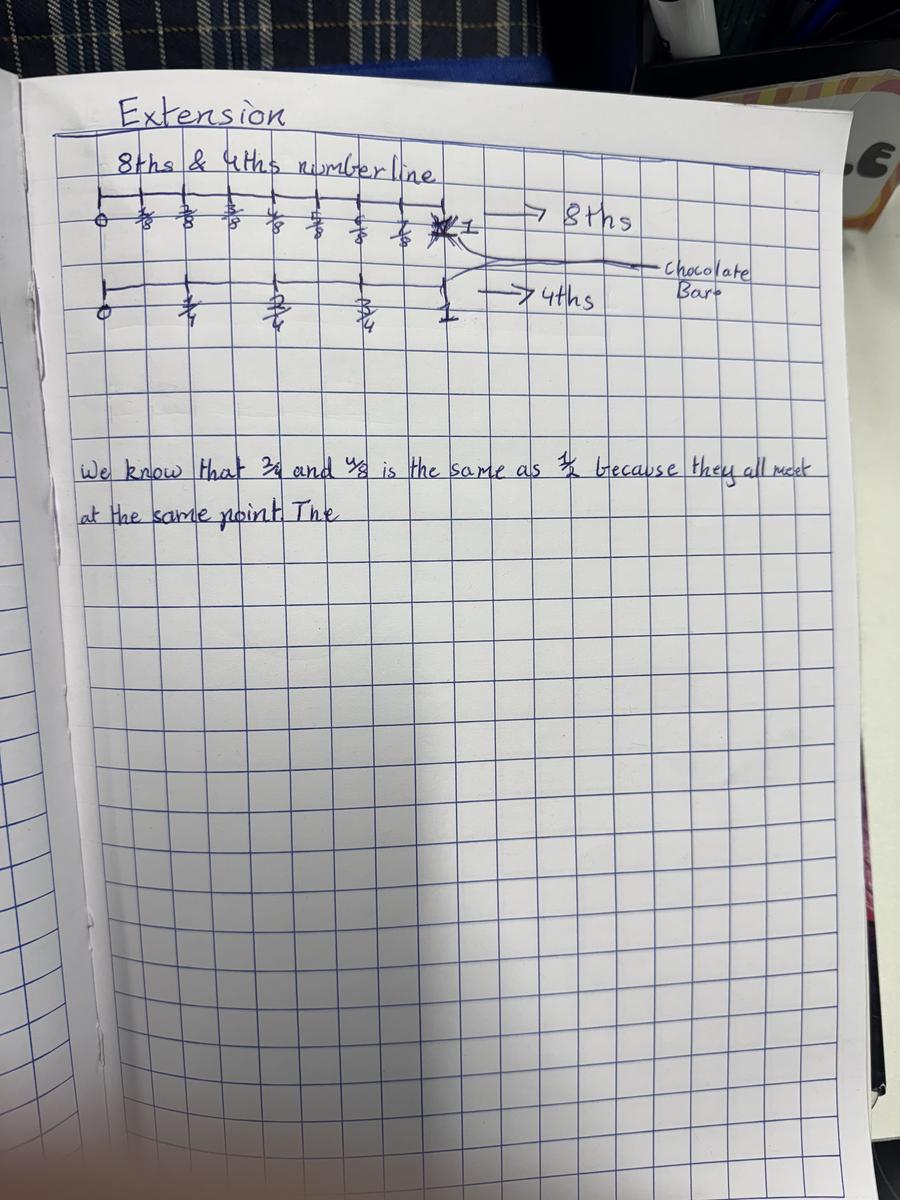 Extension
8ths & 4ths numberline
0 1/8 2/8 3/8 4/8 5/8 6/8 7/8 1 → 8ths
Chocolate
Bar
0 1/4 2/4 3/4 1 → 4ths
We know that 2/4 and 4/8 is the same as 1/2 because they all meet
at the same point. The
LE